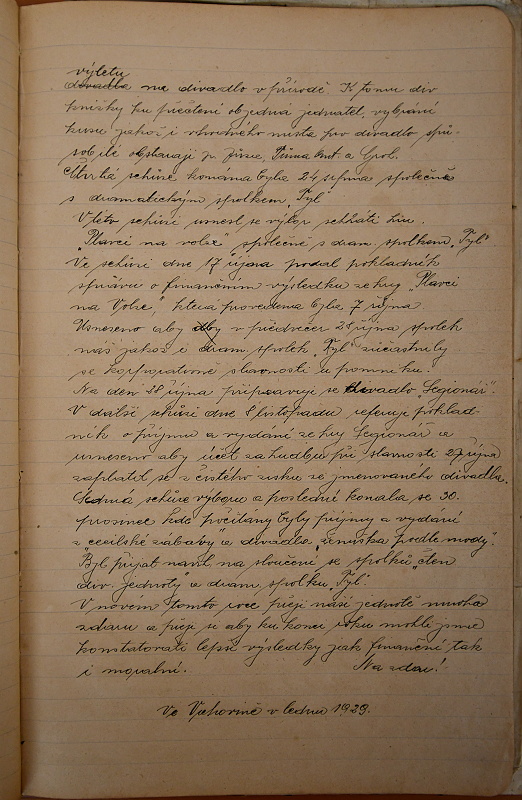 výletu
divadla na divadlo v přírodě. K tomu div
knížky ku přečtení objedná jednatel, vybrání
kusu jakož i vhodného místa pro divadlo způ-
sobilé obstarají p.
Čtvrtá schůze konána byla 24 srpna společně
s dramatickým spolkem „Tyl"
V této schůzi usnesl se výbor sehráti hru.
„Plavci na volze" společně s dram. spolkem „Tyl"
Ve schůzi dne 17 října podal pokladník
zprávu o finančním výsledku ze hry „Plavci
na Volze," která provedena byla 7 října
Usneseno aby aby v předvečer 28 října spolek
náš jakož i dram. spolek „Tyl" súčastnily
se korporativně slavnosti u pomníku.
Na den 28 října připravuje se divadlo „Legionář".
V další schůzi dne 8 listopadu referuje poklad-
ník o příjmu a vydání ze hry Legionář a
usneseno aby účet za hudbu při slavnosti 27 října
zaplatil se z čistého zisku ze jmenovaného divadla.
Sedmá schůze výboru a poslední konala se 30.
prosince kde počítány byly příjmy a vydání
z cecilské zábavy a divadla „ženuška podle mody".
Byl přijat návrh na sloučení se spolků „čten
div. jednoty" a dram spolku „Tyl".
V novém tomto roce přeji naší jednotě mnoho
zdaru a přeji si aby ku konci roku mohli jsme
konstatovati lepší výsledky jak finanční tak
i morální. Na zdar!
Ve v lednu 1929.